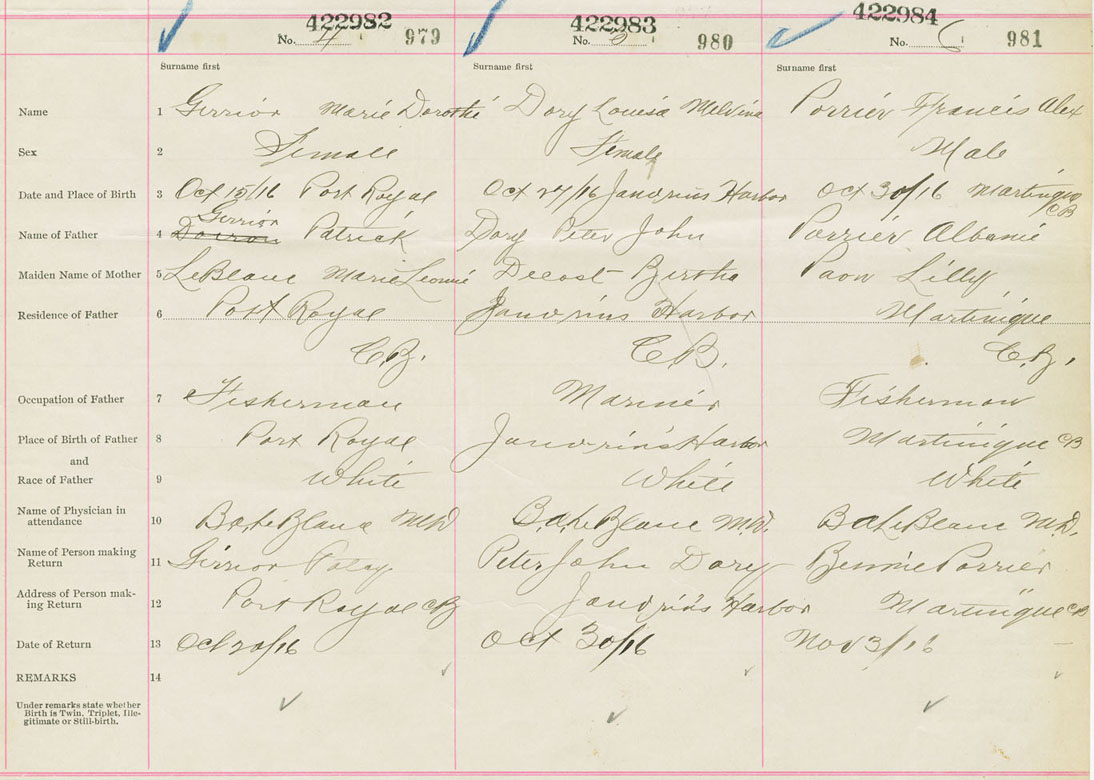 422982 422983 422984
No. 4 979 No. 5 980 No. 6 981
Surname first Surname first Surname first
Name 1 Girrior Marie Dorothé Dory Louisa Melvina Porrier Francis Alex
Sex 2 Female Female Male
Date and Place of Birth 3 Oct 15/16 Port Royal Oct 27/16 Janvrins Harbor Oct 30/16 Martinique CB
Girrior
Name of Father 4 Doiron Patrick Dory Peter John Porrier Albanie
Maiden Name of Mother 5 LeBlanc Marie Leonie Decost Bertha Paon Lilly
Residence of Father 6 Port Royal Janvrins Harbor Martinique
C.B. C.B. C.B.
Occupation of Father 7 Fisherman Mariner Fisherman
Place of Birth of Father 8 Port Royal Janvrins Harbor Martinique CB
and
Race of Father 9 White White White
Name of Physician in
attendance 10 B.A. LeBlanc M.D. B.A. LeBlanc M.D. B.A. LeBlanc M.D.
Name of Person making
Return 11 Girrior Peter John Dory Bennie Porrier
Address of Person mak-
ing Return 12 Port Royal CB Janvrins Harbor Martinique CB
Date of Return 13 Oct 20/16 Oct 30/16 Nov 3/16
REMARKS 14
Under remarks state whether
Birth is Twin. Triplet, Ille-
gitimate or Still-birth.